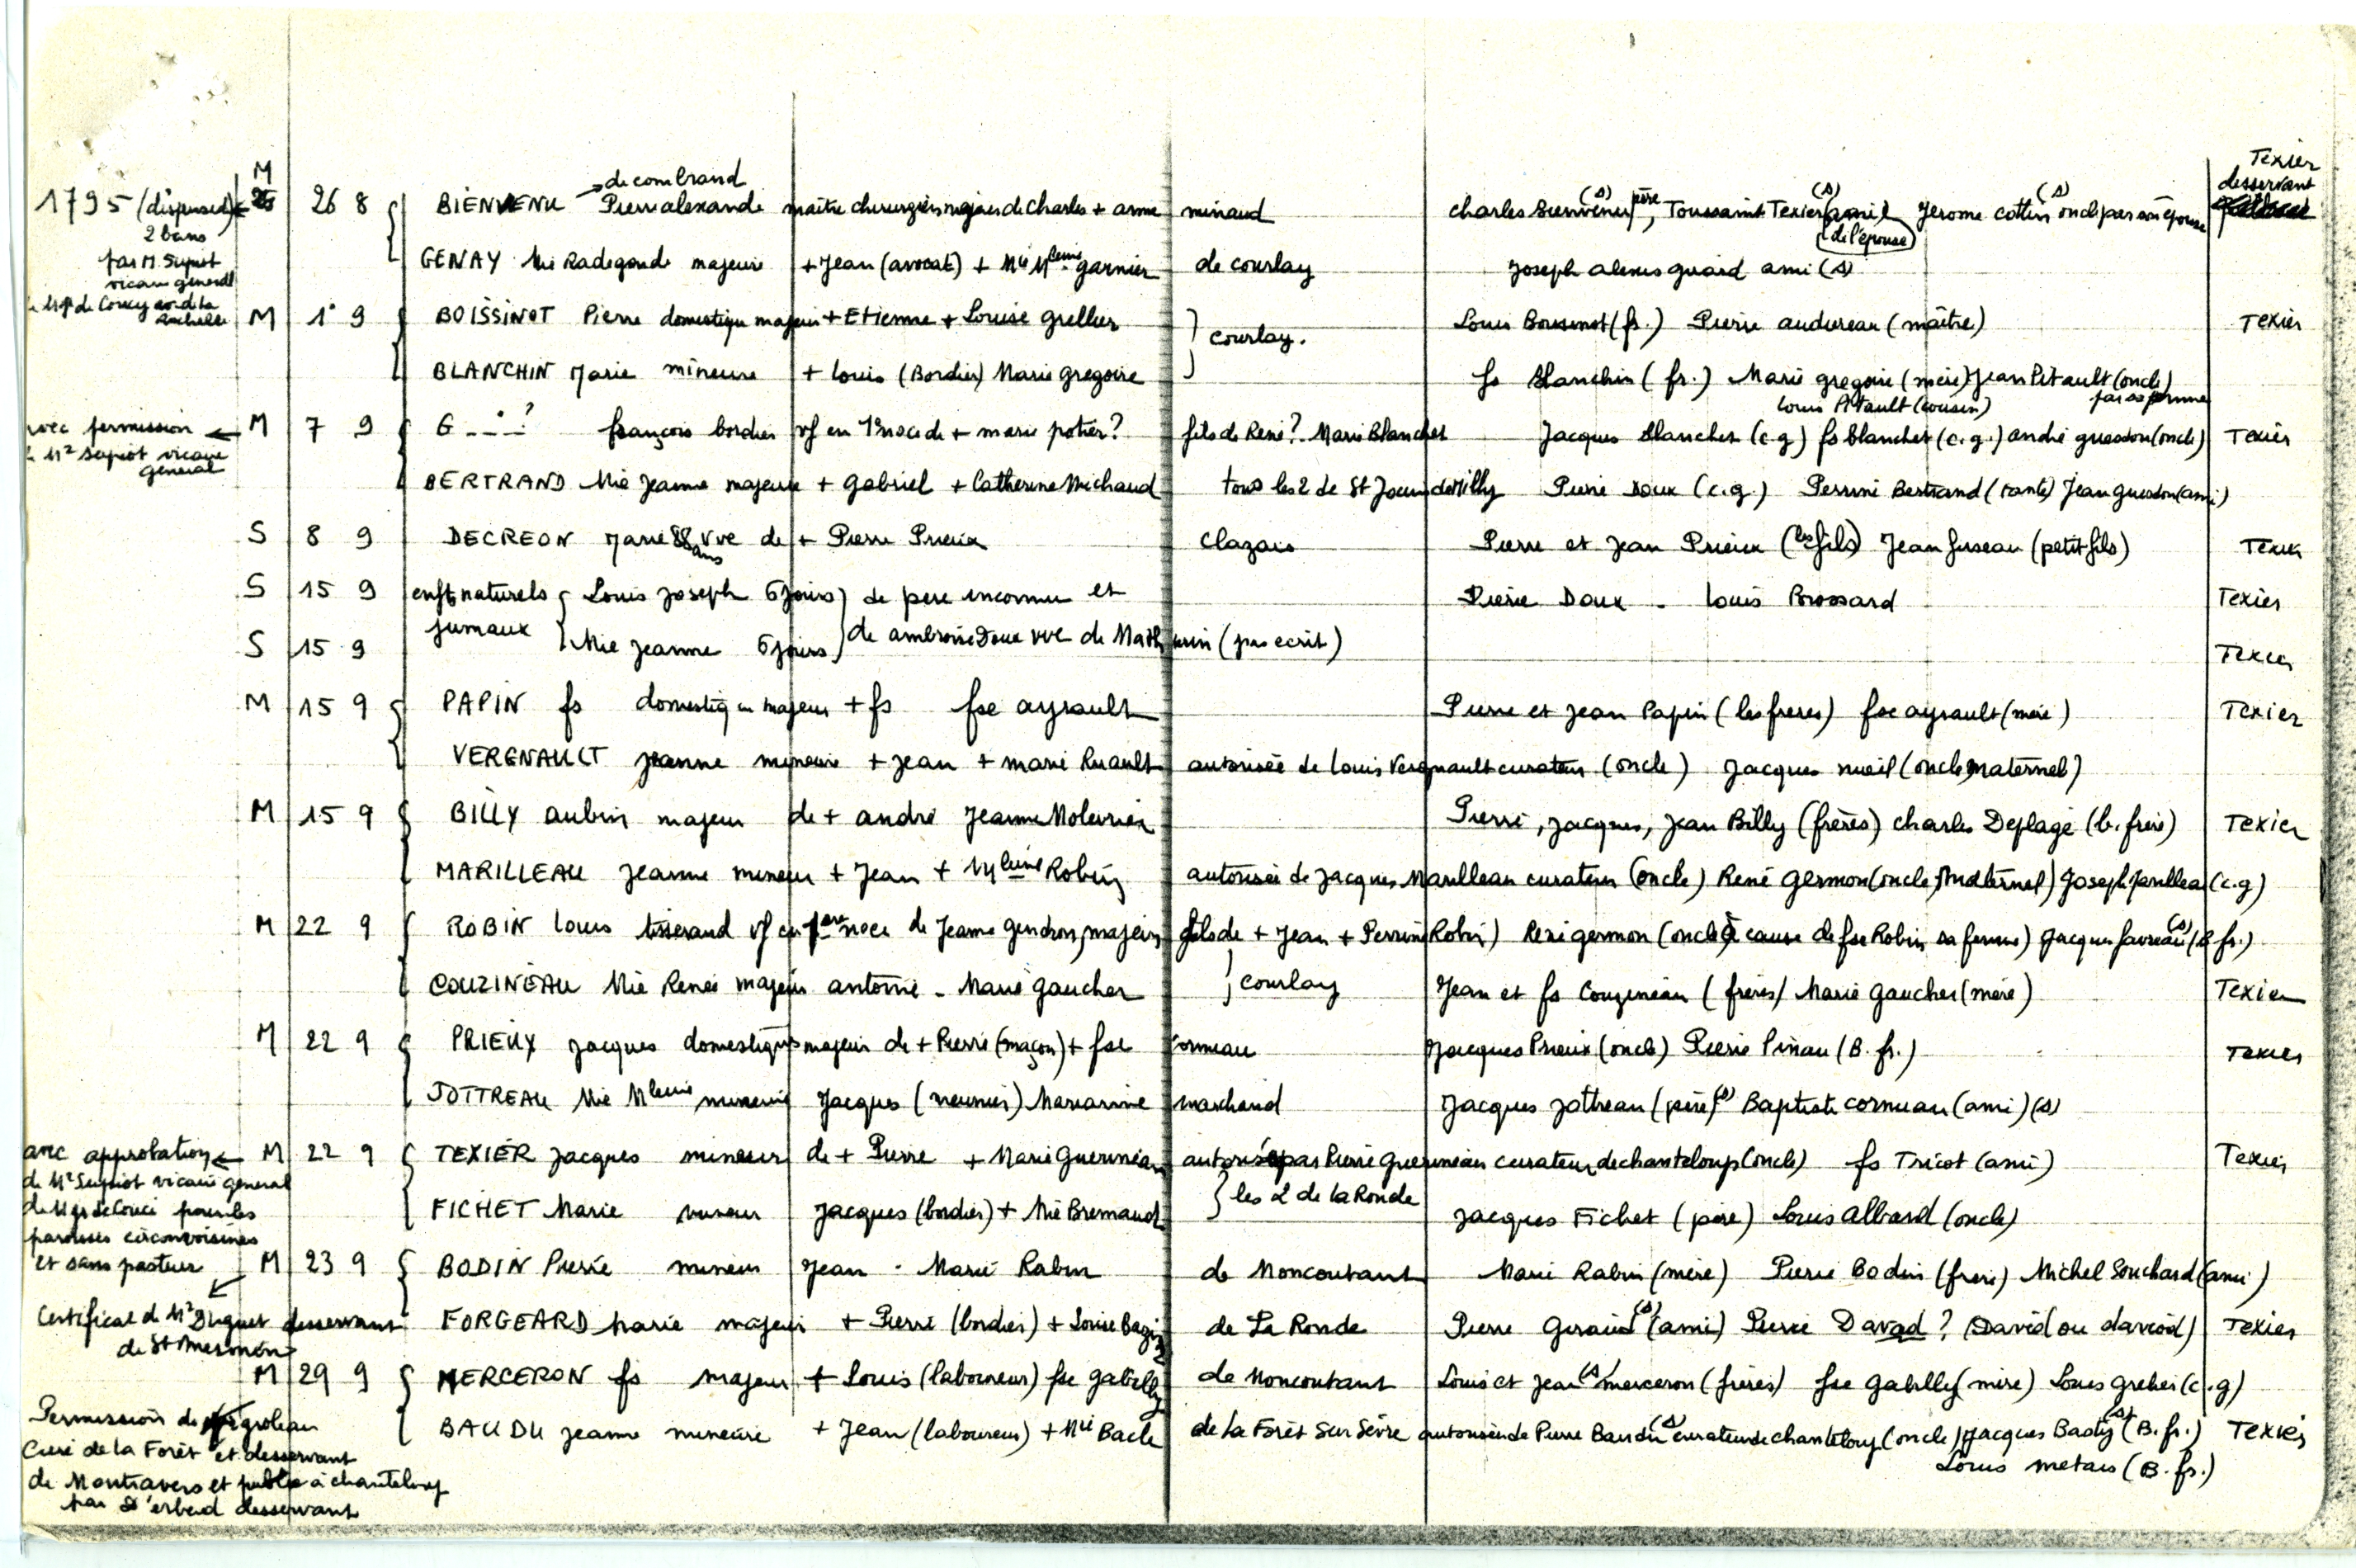 M Texier
→ de combrand desservant
1795 (dispense) ← 26 8 { BIENVENU Pierre alexandre maître chirurgien majeur de Charles + anne minaud charles Bienvenu (s) père, Toussaint Texier (s) (ami de l'épouse) Jerome cottin (s) oncle par son épouse
2 bans
par M. Supiot GENAY Mie Radegonde majeure + Jean (avocat) + Mie Mleine garnier de courlay Joseph alexis guard ami (s)
vicaire general
de Mgr de Coucy ev. de la Rochelle
M 1° 9 { BOISSINOT Pierre domestique majeur + Etienne + Louise grellier } courlay. Louis Boissinot (fr.) Pierre audureau (maître) Texier
BLANCHIN Marie mineure + louis (Bordier) Marie gregoire fs Blanchin (fr.) Marie gregoire (mère) Jean Pitault (oncle) par sa femme
louis Pitault (cousin)
avec permission ← M 7 9 { G _ _ . ? françois bordier vf en 1° noce de + marie potier? fils de René? Marie Blanchet Jacques Blanchet (c.g) fs blanchet (c.g.) andré guesdon (oncle) Texier
de Mr Supiot vicaire
general
BERTRAND Mie Jeanne majeure + Gabriel + Catherine Michaud tous les 2 de St Jouin de Milly Pierre Doux (c.g.) Perrine Bertrand (tante) Jean guesdon (ami)
S 8 9 DECREON Marie 88 ans vve de + Pierre Prieux Clazais Pierre et Jean Prieux (les fils) Jean fuseau (petit fils) Texier
S 15 9 enfts naturels { Louis Joseph 6 jours } de pere inconnu et Pierre Doux - louis Brossard Texier
S 15 9 jumaux { Mie Jeanne 6 jours } de ambroise Doux vve de Mathurin (pas ecrit) Texier
M 15 9 { PAPIN fs domestique majeur + fs fse ayrault Pierre et Jean Papin (les freres) fse ayrault (mère) Texier
VERGNAULT Jeanne mineure + Jean + marie Ruault autorisée de Louis Vergnault curateur (oncle) Jacques nueil (oncle maternel)
M 15 9 { BILLY aubin majeur de + andré Jeanne Molevrier Pierre, Jacques, Jean Billy (frères) charles Deplage (b. frère) Texier
MARILLEAU Jeanne mineure + Jean + Mleine Robin autorisée de Jacques Marilleau curateur (oncle) René germon (oncle Maternel) Joseph Marilleau (c.g)
M 22 9 { ROBIN louis tisserand vf en 1ere noce de Jeanne gendron, majeur, fils de + Jean + Perrine Robin) René germon (oncle à cause de fse Robin sa femme) Jacques favreau (s) (B fr.)
COUZINEAU Mie Renée majeure antoine - Marie gaucher } courlay Jean et fs Couzineau (frères) Marie gaucher (mère) Texier
M 22 9 { PRIEUX Jacques domestique majeur de + Pierre (maçon) + fse Corneau Jacques Prieux (oncle) Pierre Pinau (B. fr.) Texier
JOTTREAU Mie Mleine mineure Jacques (meunier) Marianne marchand Jacques Jottreau (père) (s) Baptiste corneau (ami) (s)
avec approbation ← M 22 9 { TEXIER Jacques mineur de + Pierre + Marie Guerineau autorisé par Pierre Guerineau curateur de chanteloup (oncle) fs Tricot (ami) Texier
de Mr Supiot vicaire general
de Mgr de Couci pour les FICHET Marie mineur Jacques (bordier) + Mie Bremaud } les 2 de la Ronde Jacques Fichet (père) Louis Albard (oncle)
paroisses circonvoisines
et sans pasteur M 23 9 { BODIN Pierre mineur Jean - Marie Rabin de Moncoutant Marie Rabin (mère) Pierre Bodin (frere) Michel Souchard (ami)
Certificat de Mr Duguet desservant FORGEARD Marie majeure + Pierre (bordier) + Louise Bazin de La Ronde Pierre Geraud (s) (ami) Pierre Davad? (David ou daviod) Texier
de St Mesmin
M 29 9 { MERCERON fs majeur + Louis (laboureur) fse gabilly de Moncoutant Louis et Jean (s) merceron (frères) fse gabilly (mère) Louis grelier (c.g)
Permission de groleau BAUDU Jeanne mineure + Jean (laboureur) + Mie Bacle de la Forêt Sur Sèvre autorisée de Pierre Baudu (s) curateur de chanteloup (oncle) Jacques Basty (s) (B. fr.) Texier
Curé de la Forêt et desservant Louis metais (B. fr.)
de Montravers et publié à chanteloup
par desservant